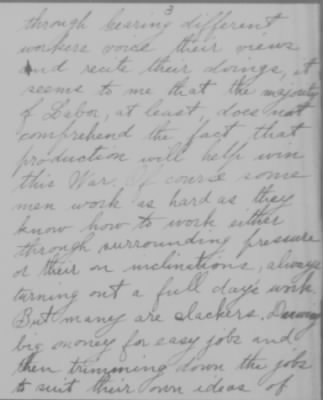 3
through hearing different
workers voice their views
and recite their doings, it
seems to me that the majority
of Labor, at least, does not
comprehend the fact that
production will help win
this War. Of course some
men work as hard as they
know how to work either
through surrounding pressure
or their on inclinations, always
turning out a full day's work.
But many are slackers. Drawing
big money for easy jobs and
then trimming down the jobs
to suit their own ideas of